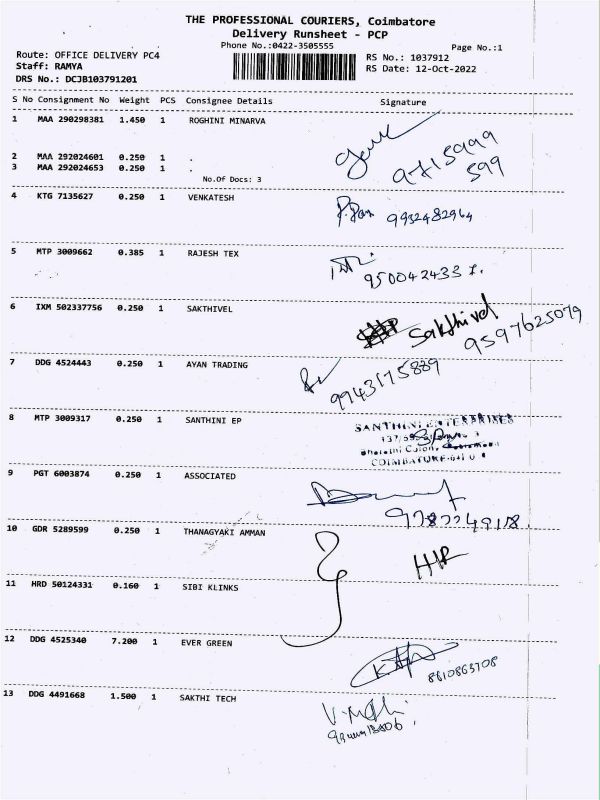 THE PROFESSIONAL COURIERS, Coimbatore
Delivery Runsheet - PCP
Phone No.:0422-3505555
Page No.:1
Route: OFFICE DELIVERY PC4
Staff: RAMYA
DRS No.: DCJB103791201
RS No.: 1037912
RS Date: 12-Oct-2022
S No Consignment No Weight PCS Consignee Details Signature
1 MAA 290298381 1.450 1 ROGHINI MINARVA
9715999
599
2 MAA 292024601 0.250 1 .
3 MAA 292024653 0.250 1 .
No.Of Docs: 3
4 KTG 7135627 0.250 1 VENKATESH
9932482964
5 MTP 3009662 0.385 1 RAJESH TEX
950042433
6 IXM 502337756 0.250 1 SAKTHIVEL
Sakthivel 9597625079
7 DDG 4524443 0.250 1 AYAN TRADING
9943175889
8 MTP 3009317 0.250 1 SANTHINI EP
SANTHINI ENTERPRISES
Bharathi Colony,
COIMBATORE-641 0
9 PGT 6003874 0.250 1 ASSOCIATED
10 GDR 5289599 0.250 1 THANAGYAKI AMMAN
11 HRD 50124331 0.160 1 SIBI KLINKS
12 DDG 4525340 7.200 1 EVER GREEN
8610863708
13 DDG 4491668 1.500 1 SAKTHI TECH